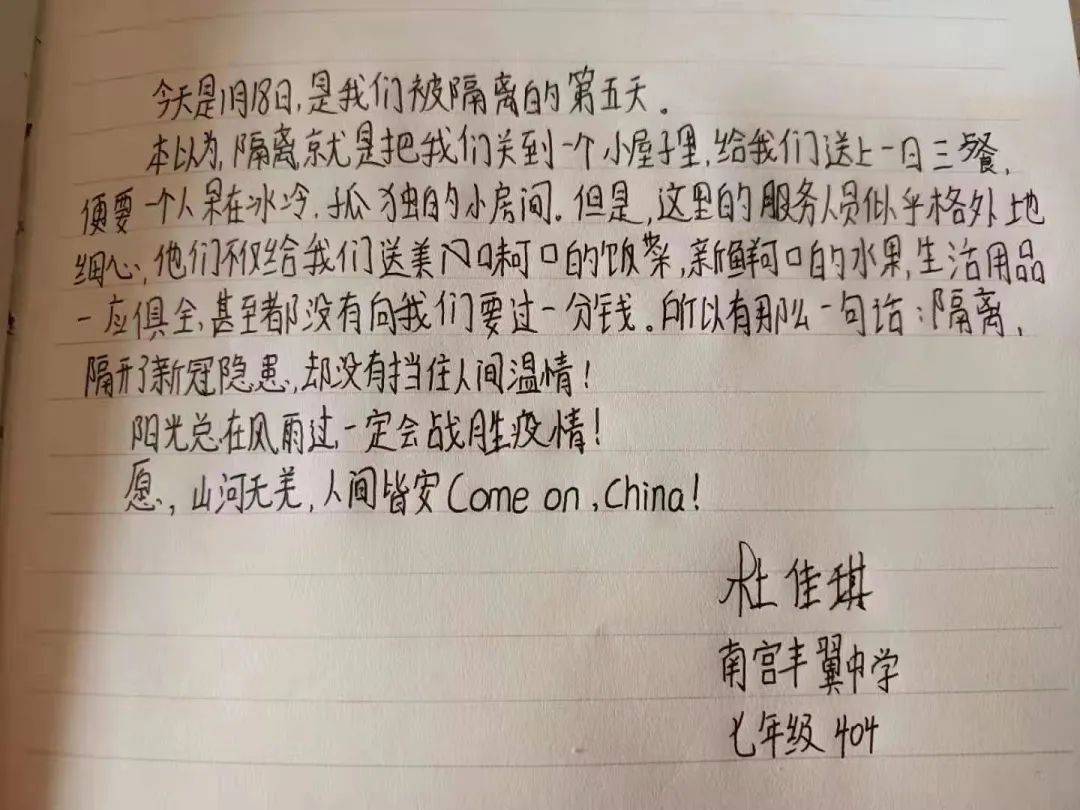 今天是1月18日,是我们被隔离的第五天。
本以为,隔离就是把我们关到一个小屋子里,给我们送上一日三餐,
便要一个人呆在冰冷、孤独的小房间。但是,这里的服务人员似乎格外地
细心,他们不仅给我们送美门味可口的饭菜,新鲜可口的水果,生活用品
一应俱全,甚至都没有向我们要过一分钱。所以有那么一句话:隔离,
隔开了新冠隐患,却没有挡住人间温情!
阳光总在风雨过,一定会战胜疫情!
愿,山河无羌,人间皆安Come on,China!
杜佳琪
南宫丰翼中学
七年级 404